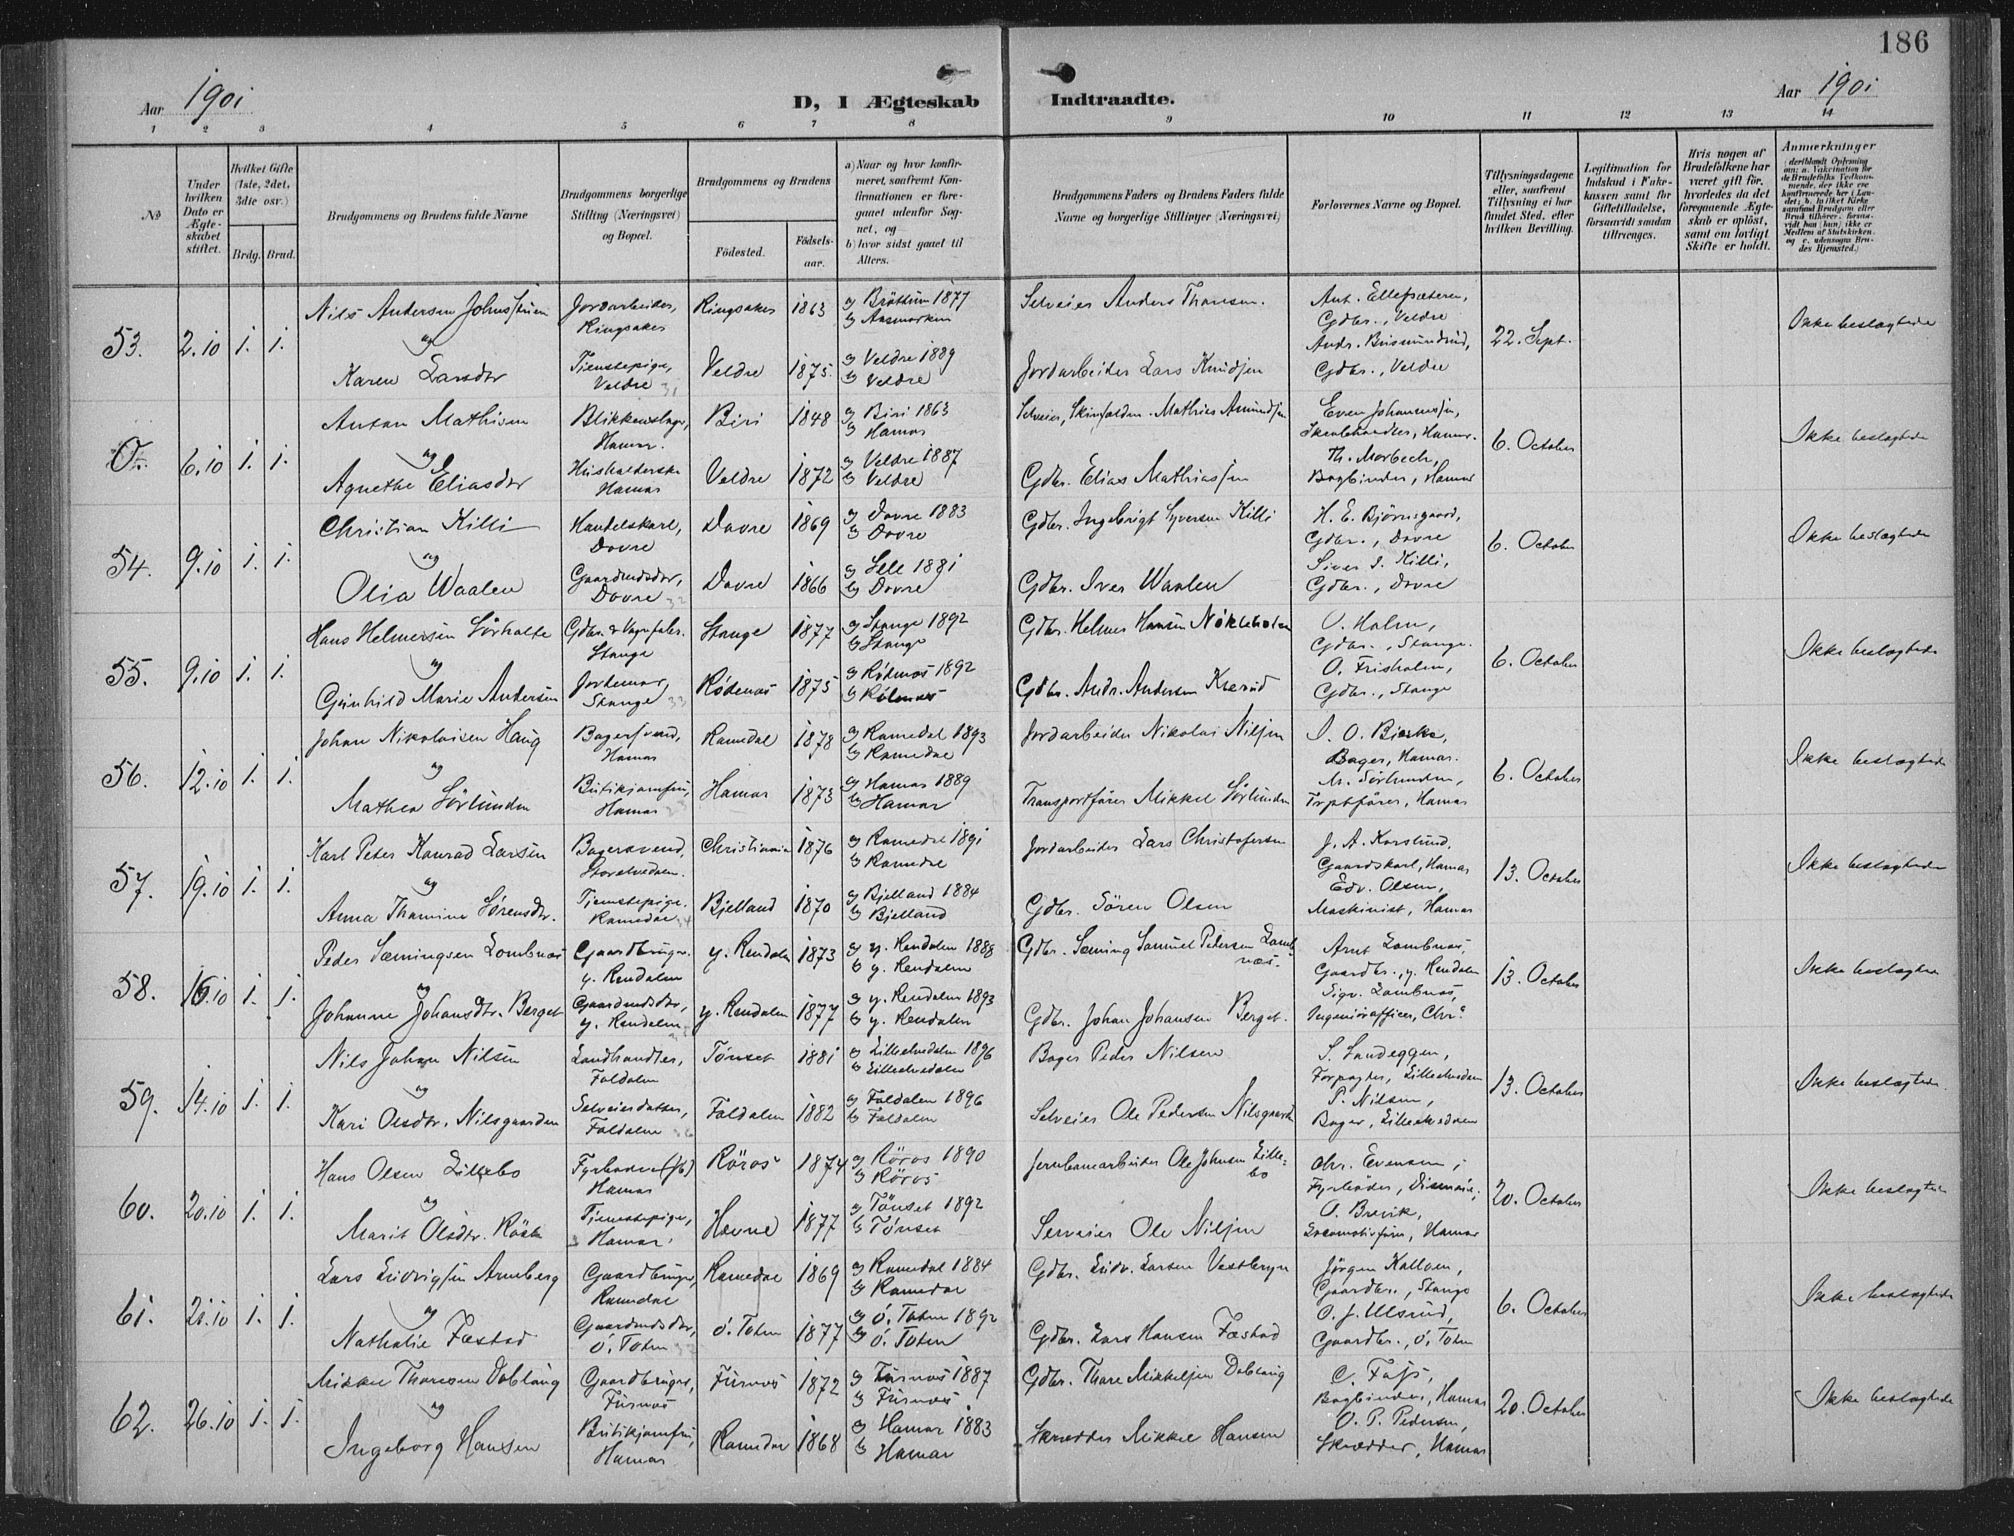 186
Aar 1901
D, I Ægteskab Indtraadte.
Aar 1901
1 2 3 4 5 6 7 8 9 10 11 12 13 14
No
Under hvilken Dato er Ægteskabet stiftet.
Hvilket Gifte (1ste, 2det, 3die osv.)
Brdg. Brud.
Brudgommens og Brudens fulde Navne
Brudgommens borgerlige Stilling (Næringsvei) og Bopæl.
Brudgommens og Brudens
Fødested.
Fødselsaar.
a) Naar og hvor konfirmeret, saafremt Konfirmationen er foregaaet udenfor Sognet, og
b) hvor sidst gaaet til Alters.
Brudgommens Faders og Brudens Faders fulde Navne og borgerlige Stillinger (Næringsvei)
Forlovernes Navne og Bopæl.
Tillysningsdagene eller, saafremt Tillysning ei har fundet Sted, efter hvilken Bevilling.
Legitimation for Indskud i Enkekassen samt for Giftetilladelse, forsaavidt saadan tiltrænges.
Hvis nogen af Brudefolkene har været gift før, hvorledes da det foregaaende Ægteskab er opløst, samt om lovligt Skifte er holdt.
Anmærkninger
53. 2.10 1. 1.
Nils Andersen
Jordarbeider, Ringsaker
Ringsaker 1863
a) Brøttum 1877
b) Aasmarken
Selveier Anders Thoresen.
Gdbr., Veldre
22. Sept.
Ikke beslægtede
og
Karen Larsdtr
Tjenestepige, Veldre
Veldre 1875.
a) Veldre 1889
b) Veldre
Jordarbeider Lars Knudsen
Gdbr., Veldre
0. 6.10 1. 1.
Anton Mathisen
Blikkenslager, Hamar.
Biri 1848
a) Biri 1863
b) Hamar
Selveier, Mathias Amundsen
Even Johannessen,
Hamar.
6. October
Ikke beslægtede
og
Agnethe Eliasdtr
Husholderske Hamar
Veldre 1872
a) Veldre 1887
b) Veldre
Gdbr. Elias Mathiassen
Th. Morbech,
Bogbinder, Hamar
54. 9.10 1. 1.
Christian Killi
Handelskarl, Dovre
Dovre 1869
a) Dovre 1883
b) Dovre
Gdbr. Ingebrigt Syversen Killi
H. E. Bjørnsgaard,
Gdbr., Dovre
6. October
Ikke beslægtede
og
Olia Waalen
Gaardmdsdtr, Dovre
Dovre 1866
a) Lell 1881
b) Dovre
Gdbr. Iver Waalen
Siver I. Killi,
Gdbr., Dovre
55. 9.10 1. 1.
Hans Helmersen Sørholte
Stange
Stange 1877
a) Stange 1892
b) Stange
Gdbr. Helmer Hansen Nøkleholm
O. Holm,
Gdbr., Stange.
6. October
Ikke beslægtede
og
Gunhild Marie Andersen
Jordemor, Stange
Rødenæs 1875
a) Rødenæs 1892
b) Rødenæs
Gdbr. Andr. Andersen Krerud
O. Frisholm,
Gdbr., Stange
56. 12.10 1. 1.
Johan Nikolaisen Haug
Bagersvend, Hamar
Romedal 1878
a) Romedal 1893
b) Romedal
Jordarbeider Nikolai Nilsen
Bager, Hamar.
6. October
Ikke beslægtede
og
Mathea Sørlunden
Butikjomfru, Hamar
Hamar 1873
a) Hamar 1889
b) Hamar
Transportfører Mikkel Sørlunden
M. Sørlunden,
Trptfører, Hamar
57. 19.10 1. 1.
Karl Peter Konrad Larsen
Bagersvend, Storelvedalen.
Christiania 1876
a) Romedal 1891
b) Romedal
Jordarbeider Lars Christofersen
J. A. Korslund.
Gaardskarl, Hamar
13. October
Ikke beslægtede
og
Anna Thomine Sørensdtr.
Tjenestepige, Romedal
Bjelland 1870
a) Bjelland 1884
b) Bjelland
Gdbr. Sören Olsen
Edv. Olsen,
Maskinist, Hamar
58. 16.10 1. 1.
Peder Sæmingsen Lombnæs
Gaardbruger. y. Rendalen
y. Rendalen 1873
a) y. Rendalen 1888
b) y. Rendalen
Gdbr. Sæming Samuel Pedersen Lombnæs.
Arnt Lombnæs,
Gaardbr., y. Rendalen
13. October
Ikke beslægtede
og
Johanne Johansdtr. Berget
Gaardmdsdtr, y. Rendalen
y. Rendalen 1877
a) y. Rendalen 1893
b) y. Rendalen
Gdbr. Johan Johansen Berget.
Sigv. Lombnæs,
Ingeniørofficer, Chr.a
59. 14.10 1. 1.
Nils Johan Nilsen
Landhandler, Foldalen
Tönset 1881
a) Lilleelvedalen 1896
b) Lilleelvedalen
Bager Peder Nilsen
S. Sandeggen,
Forpagter, Lilleelvedalen
13. October
Ikke beslægtede.
og
Kari Olsdtr. Nilsgaarden
Selveierdatter, Foldalen
Foldalen 1882
a) Foldalen 1896
b) Foldalen
Selveier Ole Pedersen Nilsgaard
P. Nilsen,
Bager, Lilleelvedalen
60. 20.10 1. 1.
Hans Olsen Lillebo
Hamar
Röros 1874
a) Röros 1890
b) Röros
Jernbanearbeider Ole Johnsen Lillebo
Chr. Evensen,
20. October
Ikke beslægtede
og
Marit Olsdtr.
Tjenestepige, Hamar
Hevne 1877
a) Tönset 1892
b) Tönset
Selveier Ole Nilsen
O. Brevik,
Locomotivförer, Hamar
61. 21.10 1. 1.
Lars Ludvigsen Arneberg
Gaardbruger, Romedal
Romedal 1869
a) Romedal 1884
b) Romedal
Gdbr. Ludv. Larsen Vestbryn
Jörgen Kolloen,
Gaardbr., Stange
6. October
Ikke beslægtede
og
Nathalie Fæstad
Gaardmdsdtr, Ö. Toten
Ö. Toten 1877
a) Ö. Toten 1892
b) Ö. Toten
Gdbr. Lars Hansen Fæstad
O. J. Ulsrud,
Gaardbr., Ö. Toten
62. 26.10 1. 1.
Mikkel Thoresen Dobloug
Gaardbruger, Furnæs
Furnæs 1872
a) Furnæs 1887
b) Furnæs
Gdbr. Thore Mikkelsen Dobloug
Bogbinder, Hamar
20. October
Ikke beslægtede
og
Ingeborg Hansen
Butikjomfru, Hamar
Romedal 1868
a) Hamar 1883
b) Hamar
Skrædder Mikkel Hansen
O. P. Pedersen,
Skrædder, Hamar